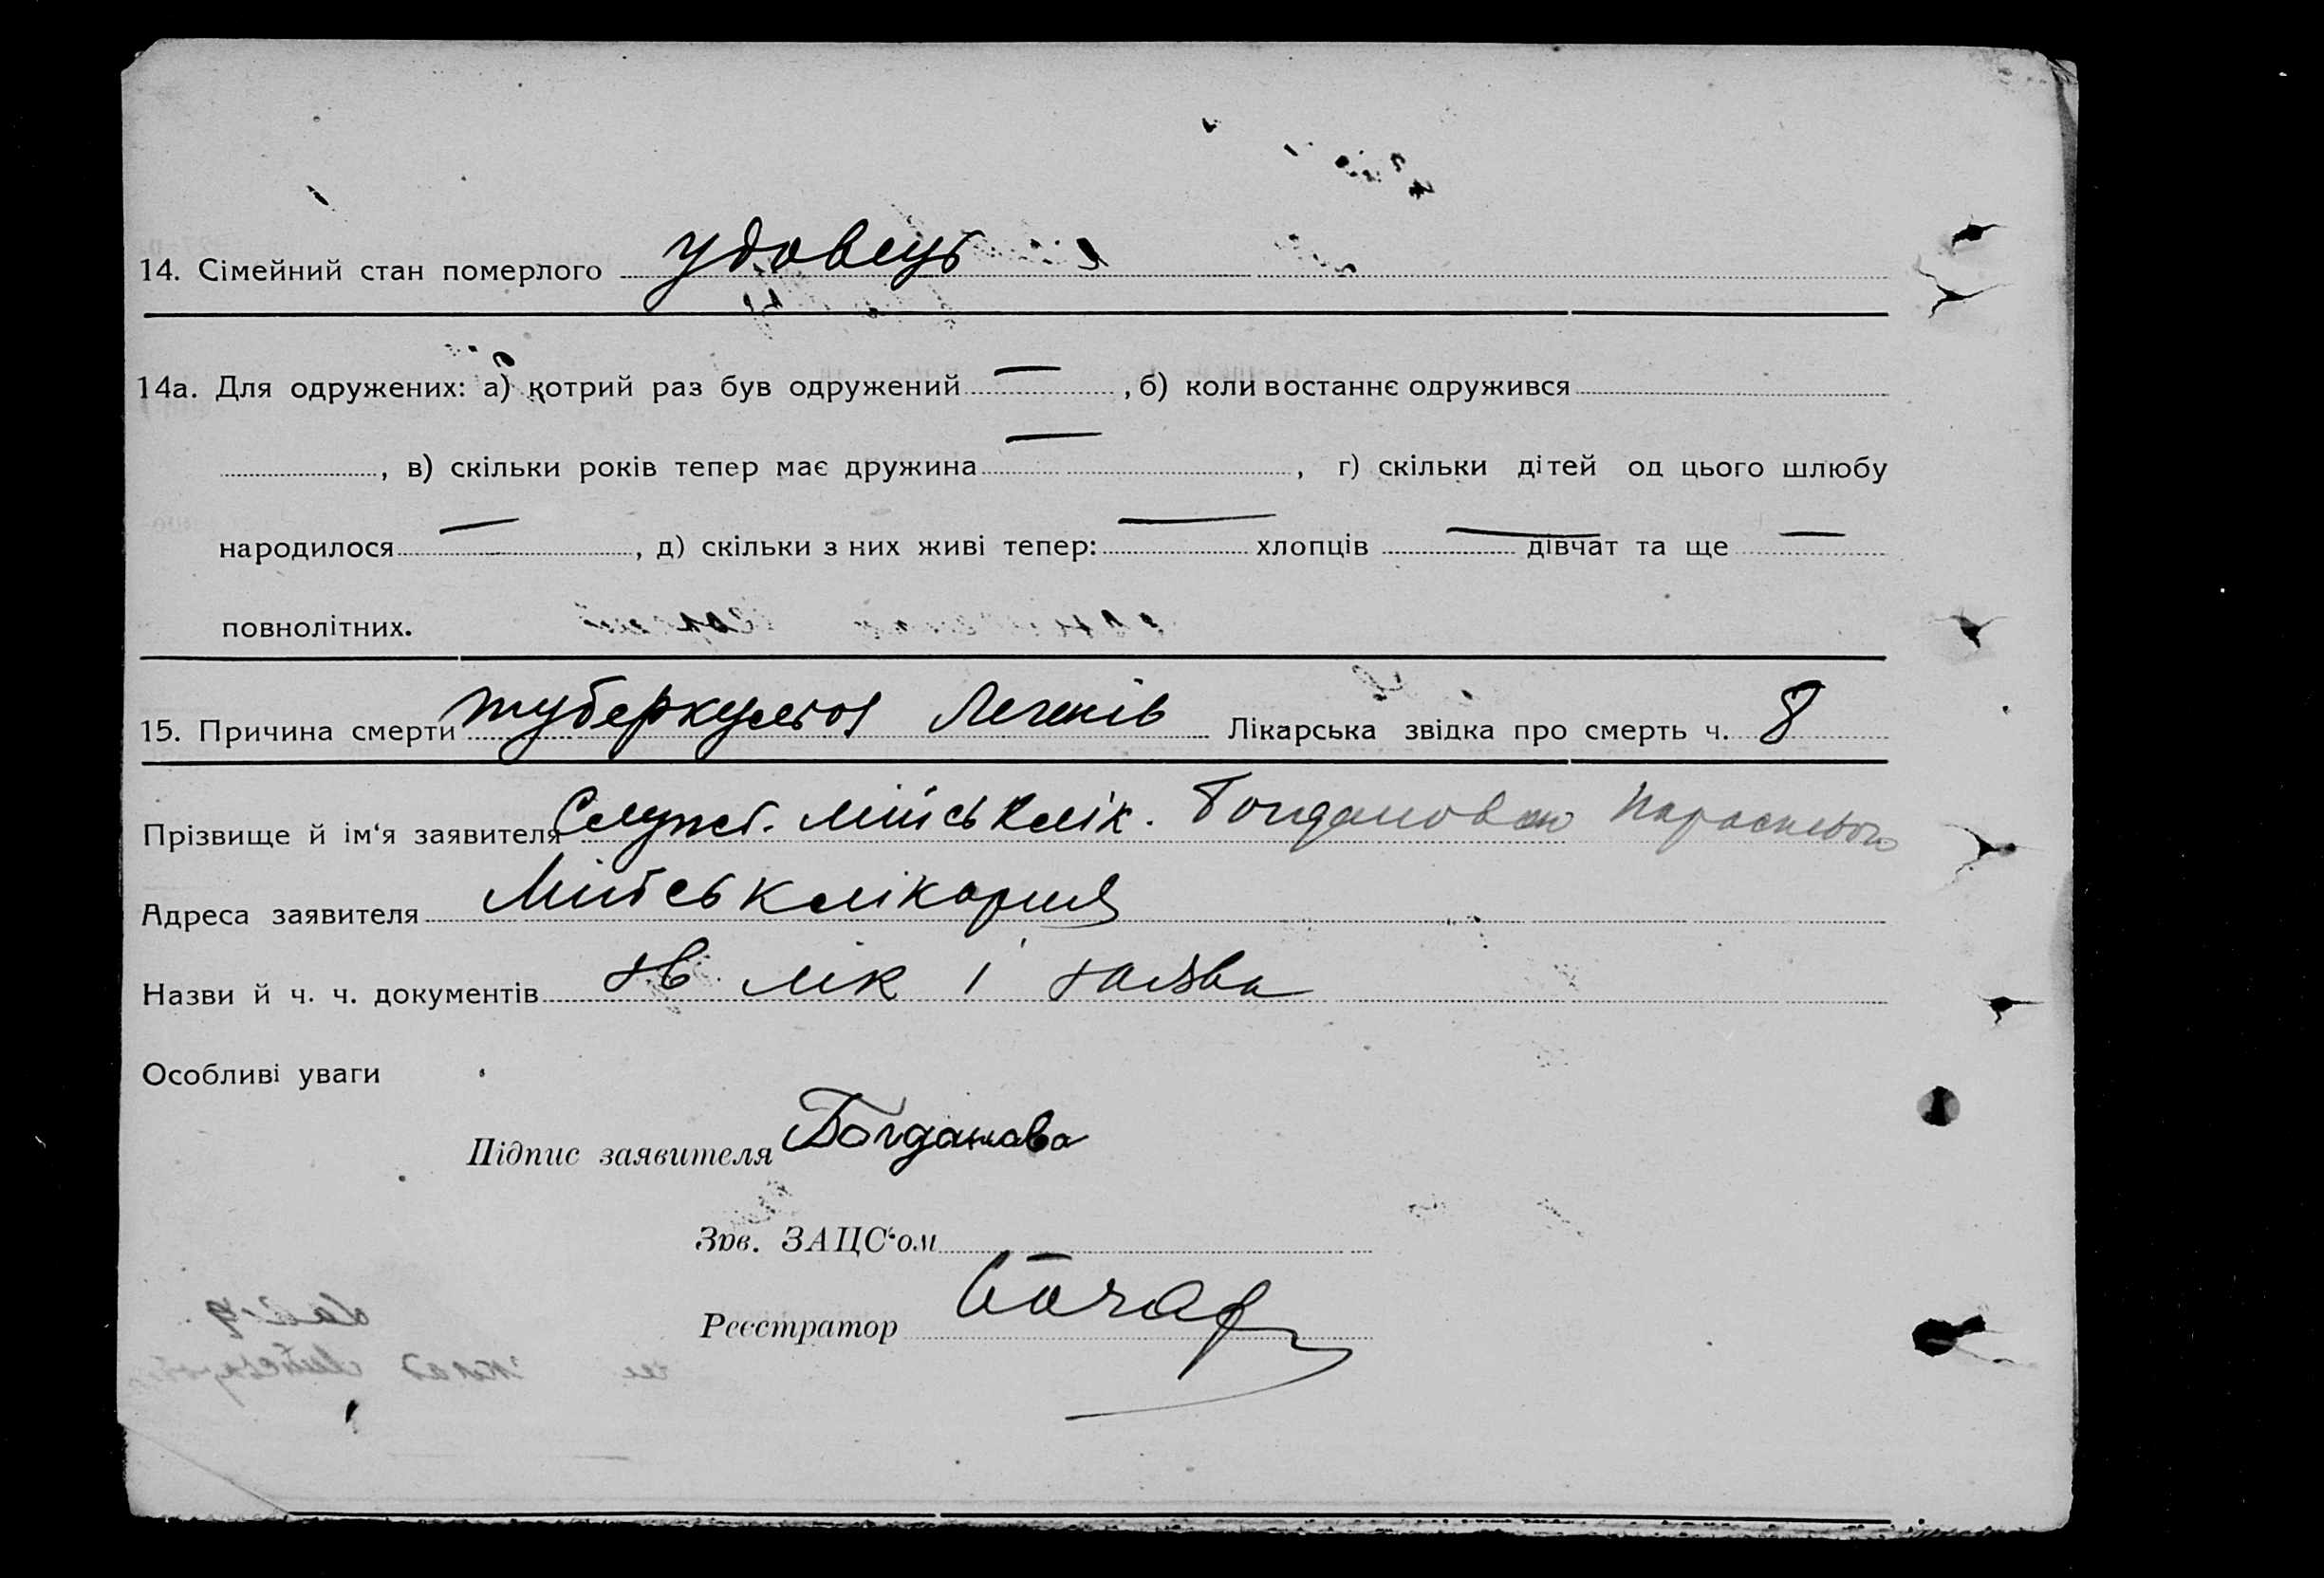 14. Сімейний стан померлого удовець
14а. Для одружених: а) котрий раз був одружений — , б) коли востаннє одружився
, в) скільки років тепер має дружина — , г) скільки дітей од цього шлюбу
народилося — , д) скільки з них живі тепер: — хлопців — дівчат та ще —
повнолітних.
15. Причина смерти туберкульоз легенів Лікарська звідка про смерть ч. 8
Прізвище й ім‘я заявителя Служб. міськлік. Богданова
Адреса заявителя Міськлікарня
Назви й ч. ч. документів лік і заява
Особливі уваги
Підпис заявителя Богданова
Зав. ЗАЦС‘ом
Реєстратор